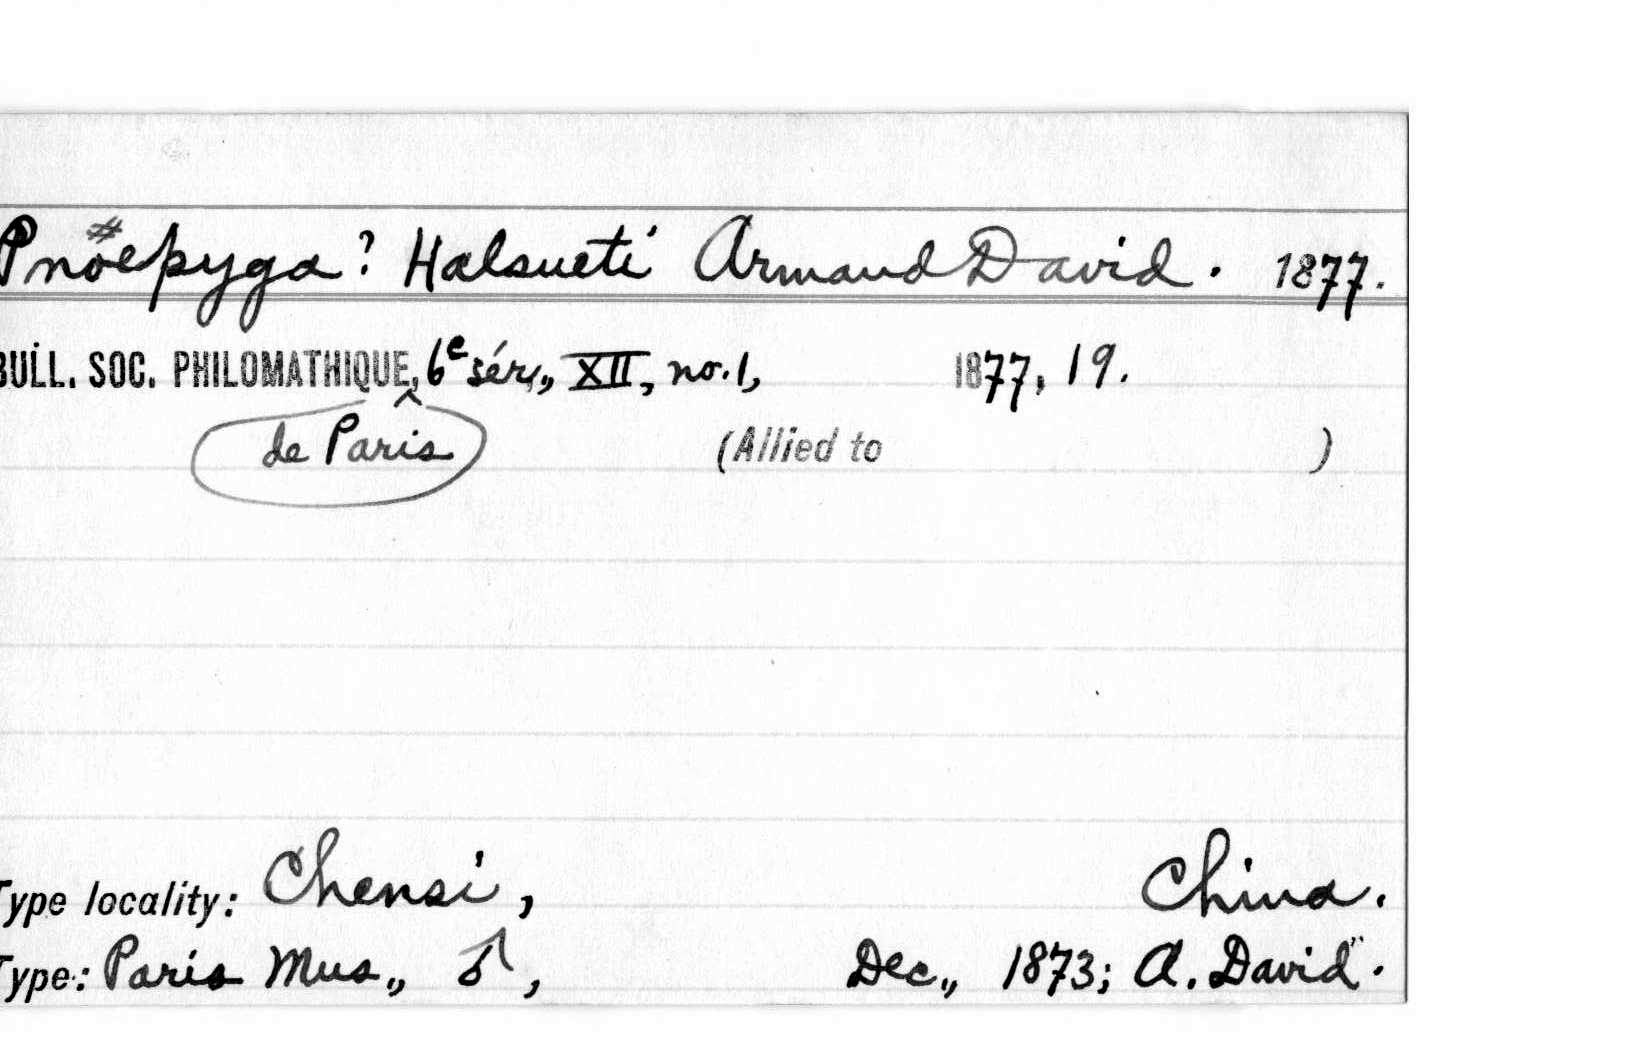 Pnöepyga? Halsueti Armand David. 1877.
BULL. SOC. PHILOMATHIQUE, 6e sér., XII, no. 1, 1877, 19.
de Paris (Allied to )
Type locality: Chensi, China.
Type: Paris Mus., ♂, Dec., 1873; A. David".